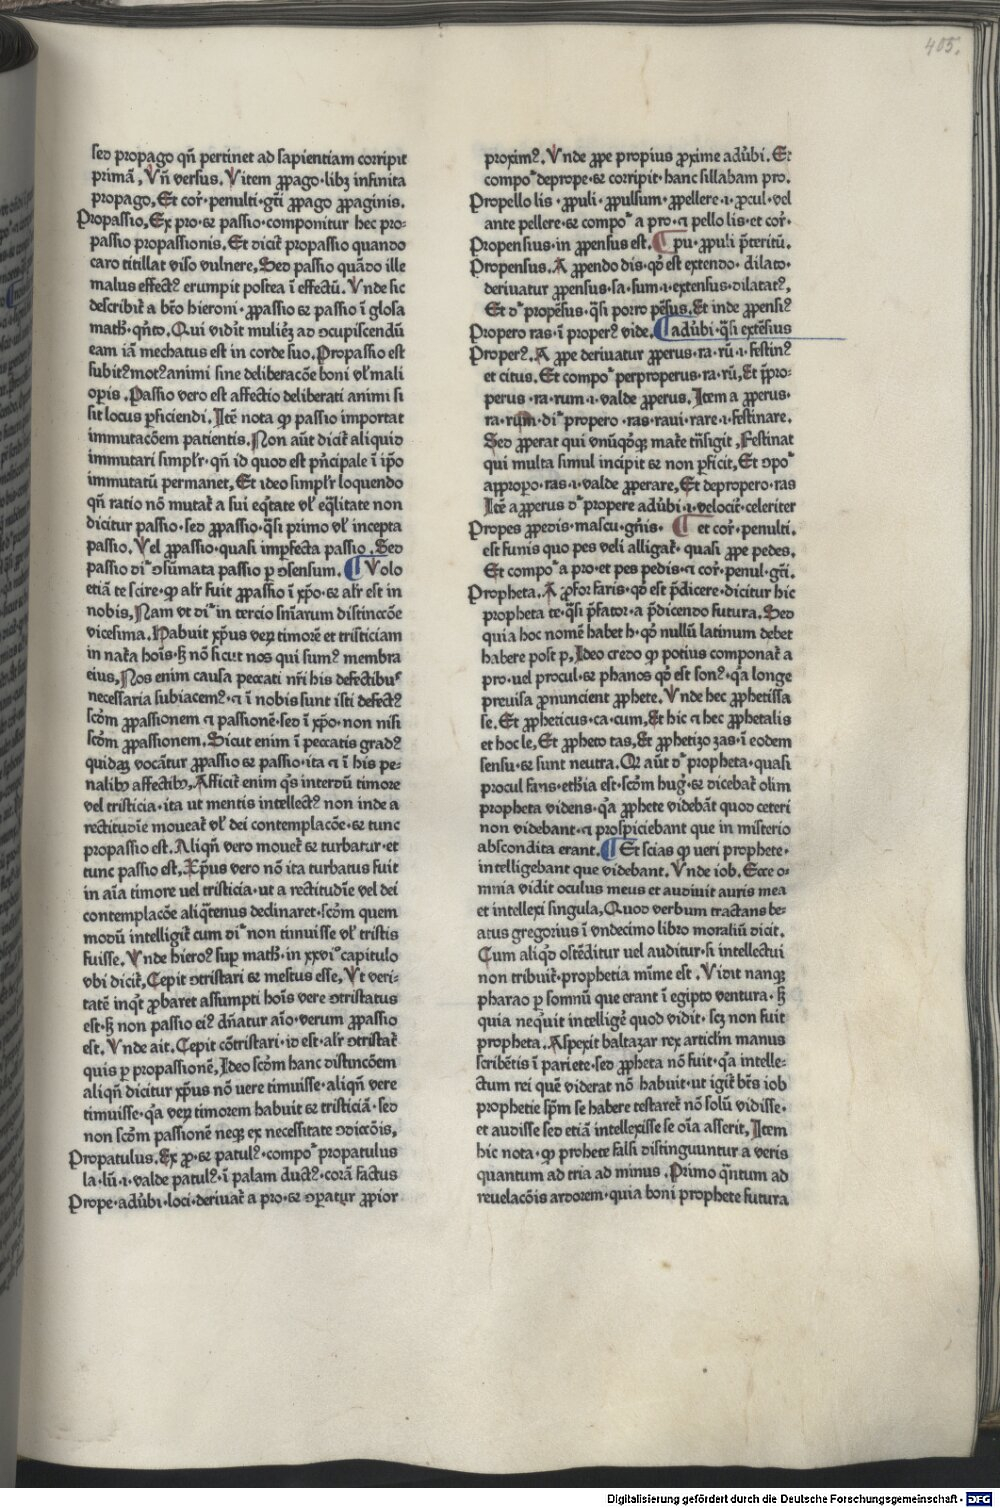 405.
sed propago qñ pertinet ad sapientiam corripit
primã, Vñ versus. Vitem ꝓpago·libꝫ infinita
propago, Et cor̃·penulti·gti ꝓpago ꝓpaginis.
Propassio, Ex pro·⁊ passio·componitur hec pro⸗
passio propassionis, Et dicit̃ propassio quando
caro titillat viso vulnere, Sed passio quãdo ille
malus effectꝰ erumpit postea ĩ effectũ. Vnde sic
describit̃ a btõ hieroni·ꝓpassio ⁊ passio ĩ glosa
matħ·qñto. Qui vidit mulierẽ ad ↄcupiscendũ
eam iã mechatus est in corde suo. Propassio est
subitꝰ motꝰ animi sine deliberacõe boni vł mali
oꝑis. Passio vero est affectio deliberati animi si
sit locus ꝑficiendi. Itẽ nota ꝙ passio importat
immutacõem patientis. Non aũt dicit̃ aliquid
immutari simplr·qñ id quod est pñcipale ĩ ipõ
immutatũ permanet, Et ideo simplr loquendo
qñ ratio nõ mutat̃ a sui eqtate vł eqlitate non
dicitur passio·sed ꝓpassio·qsi primo vł incepta
passio. Vel ꝓpassio·quasi imꝑfecta passio. Sed
passio dr̃ ↄsũmata passio ꝑ ↄsensum. ¶ Volo
etiã te scire·ꝙ alr fuit ꝓpassio ĩ xp̃o·⁊ alr est in
nobis, Nam vt dr̃ in tercio sniarum distinccõe
vicesima. Habuit xp̃us veꝝ timorẽ et tristiciam
in nat̃a hoĩs·sꝫ nõ sicut nos qui sumꝰ membra
eius, Nos enim causa peccati nr̃i his defectibus
necessaria subiacemꝰ·⁊ ĩ nobis sunt isti defectꝰ
scd̃m ꝓpassionem ⁊ passionẽ·sed ĩ xp̃o·non nisi
scd̃m ꝓpassionem. Sicut enim ĩ peccatis gradꝰ
quidam vocãtur ꝓpassio ⁊ passio·ita ⁊ ĩ his pe⸗
nalibꝫ affectibꝫ, Afficit̃ enim qs interdũ timore
vel tristicia·ita ut mentis intellectꝰ non inde a
rectitudĩe moueat̃ vł dei contemplacõe·⁊ tunc
propassio est. Aliqñ vero mouet̃ ⁊ turbatur·et
tunc passio est, Xp̃us vero nõ ita turbatus fuit
in aĩa timore uel tristicia·ut a rectitudĩe vel dei
contemplacõe aliqtenus declinaret·scd̃m quem
modũ intelligit̃ cum dr̃ non timuisse vł tristis
fuisse. Vnde hieroꝰ sup matħ·in xxvi° capitulo
vbi dicit̃, Cepit ↄtristari ⁊ mestus esse, Vt veri⸗
tatẽ inqt ꝓbaret assumpti hoĩs vere ↄtristatus
est·sꝫ non passio eiꝰ dñatur aĩo·verum ꝓpassio
est. Vnde ait. Cepit cõtristari·id est·alr ↄtristat̃
quis ꝑ propassionẽ, Ideo scd̃m hanc distincõem
aliqñ dicitur xp̃us nõ uere timuisse·aliqñ vere
timuisse·qa veꝝ timorem habuit ⁊ tristiciã·sed
non scd̃m passionẽ neqꝫ ex necessitate ↄdiccõis,
Propatulus. Ex ꝓ·⁊ patulꝰ·compoʳ propatulus
la·lũ·i·valde patulꝰ·ĩ palam ductꝰ·corã factus
Prope·adũbi·loci·deriuat̃ a pro·⁊ ↄparatur ꝓpior
proximꝰ. Vnde ꝓpe propius ꝓxime adũbi. Et
compoʳ deprope·⁊ corripit·hanc sillabam pro.
Propello lis·ꝓpuli·ꝓpulsum·ꝓpellere·i·ꝓcul·vel
ante pellere·⁊ compoʳ a pro·⁊ pello lis·et cor̃·
Propensius·in ꝓpensus est. ¶ pu·ꝓpuli p̃teritũ.
Propensus. A ꝓpendo dis·qd̃ est extendo·dilato·
deriuatur ꝓpensus·sa·sum·i·extensus·dilatatꝰ,
Et dʳ propẽsus·qsi porro pẽsus. Et inde ꝓpensiꝰ
Propero ras·ĩ properꝰ vide. ¶ adũbi·qsi extẽsius
Properꝰ. A ꝓpe deriuatur ꝓperus·ra·rũ·i·festinꝰ
et citus. Et compoʳ perproperus·ra·rũ, Et p̃pro⸗
perus·ra·rum·i·valde ꝓperus. Item a ꝓperus·
ra·rum·diʳ propero·ras·raui·rare·i·festinare.
Sed ꝓperat qui vnũqd̃qꝫ mat̃e tñsigit, Festinat
qui multa simul incipit ⁊ non ꝑficit, Et ↄpoʳ
appropo·ras·i·valde ꝓperare, Et depropero·ras
Itẽ a ꝓperus dʳ propere adũbi·i·velocit̃·celeriter
Propes ꝓpedis·mascu·gñis. ¶ et cor̃·penulti.
est funis quo pes veli alligat̃·quasi ꝓpe pedes.
Et compoʳ a pro·et pes pedis·⁊ cor̃·penul·gti.
Propheta. A ꝓfor faris·qd̃ est p̃dicere·dicitur hic
propheta te·qsi p̃fator·a p̃dicendo futura. Sed
quia hoc nomẽ habet h·qd̃ nullũ latinum debet
habere post p, Ideo credo ꝙ potius componat̃ a
pro·vel procul·⁊ phanos qd̃ est sonꝰ·qa longe
preuisa ꝓnuncient ꝓphete. Vnde hec ꝓphetissa
se. Et ꝓpheticus·ca·cum, Et hic ⁊ hec ꝓphetalis
et hoc le, Et ꝓpheto tas, Et ꝓphetizo zas·ĩ eodem
sensu·⁊ sunt neutra. Qꝛ aũt dʳ propheta·quasi
procul fans·ethĩa est·scd̃m hug̃·⁊ dicebat̃ olim
propheta videns·qa ꝓphete videbãt quod ceteri
non videbant·⁊ prospiciebant que in misterio
abscondita erant. ¶ Et scias ꝙ ueri prophete·
intelligebant que videbant. Vnde iob. Ecce o⸗
mnia vidit oculus meus et audiuit auris mea
et intellexi singula, Quod verbum tractans be⸗
atus gregorius ĩ vndecimo libro moraliũ dicit.
Cum aliqd̃ ostẽditur uel auditur·si intellectui
non tribuit̃·prophetia mĩme est. Vidit nanqꝫ
pharao ꝑ somnũ que erant ĩ egipto ventura·sꝫ
quia nequit intelligẽ quod vidit·scꝫ non fuit
propheta. Aspexit baltazar rex articlm manus
scribẽtis ĩ pariete·sed ꝓpheta nõ fuit·qa intelle⸗
ctum rei quẽ viderat nõ habuit·ut igit̃ bt̃s iob
prophetie sp̃m se habere testaret̃ nõ solũ vidisse·
et audisse sed etiã intellexisse se oĩa asserit, Item
hic nota·ꝙ prohete falsi distinguuntur a veris
quantum ad tria ad minus. Primo qñtum ad
reuelacõis ardorem·quia boni prophete futura
Digitalisierung gefördert durch die Deutsche Forschungsgemeinschaft - DFG